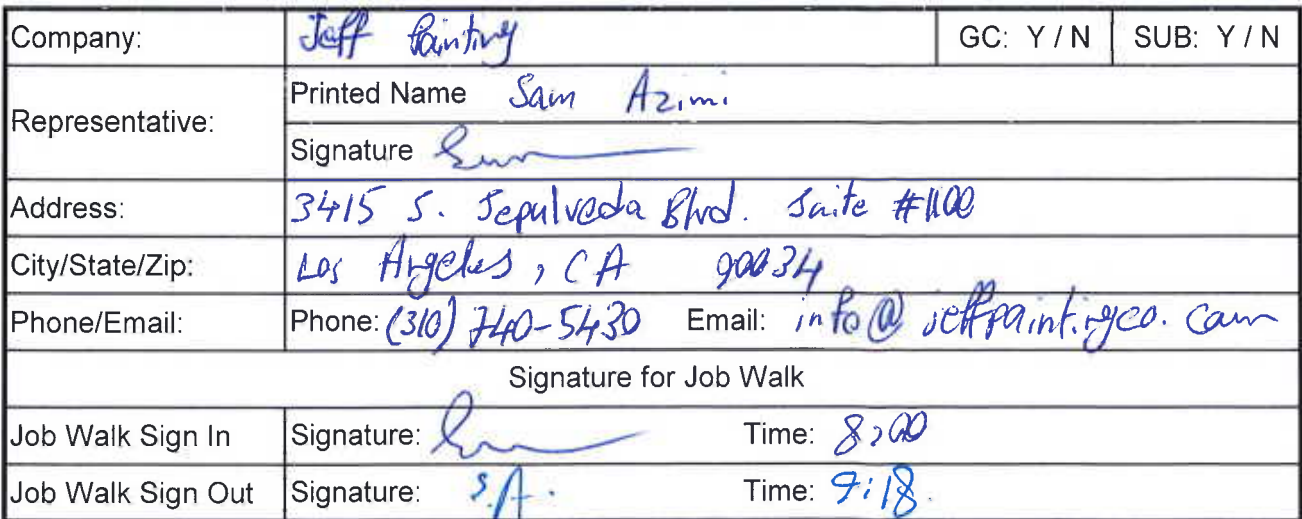 Company: Jeff Painting GC: Y / N SUB: Y / N
Representative:
Printed Name Sam Azimi
Signature
Address: 3415 S. Sepulveda Blvd. Suite #1100
City/State/Zip: Los Angeles, CA 90034
Phone/Email: Phone: (310) 740-5430 Email: info@jeffpaintingco.com
Signature for Job Walk
Job Walk Sign In Signature: Time: 8:00
Job Walk Sign Out Signature: S.A. Time: 9:18.